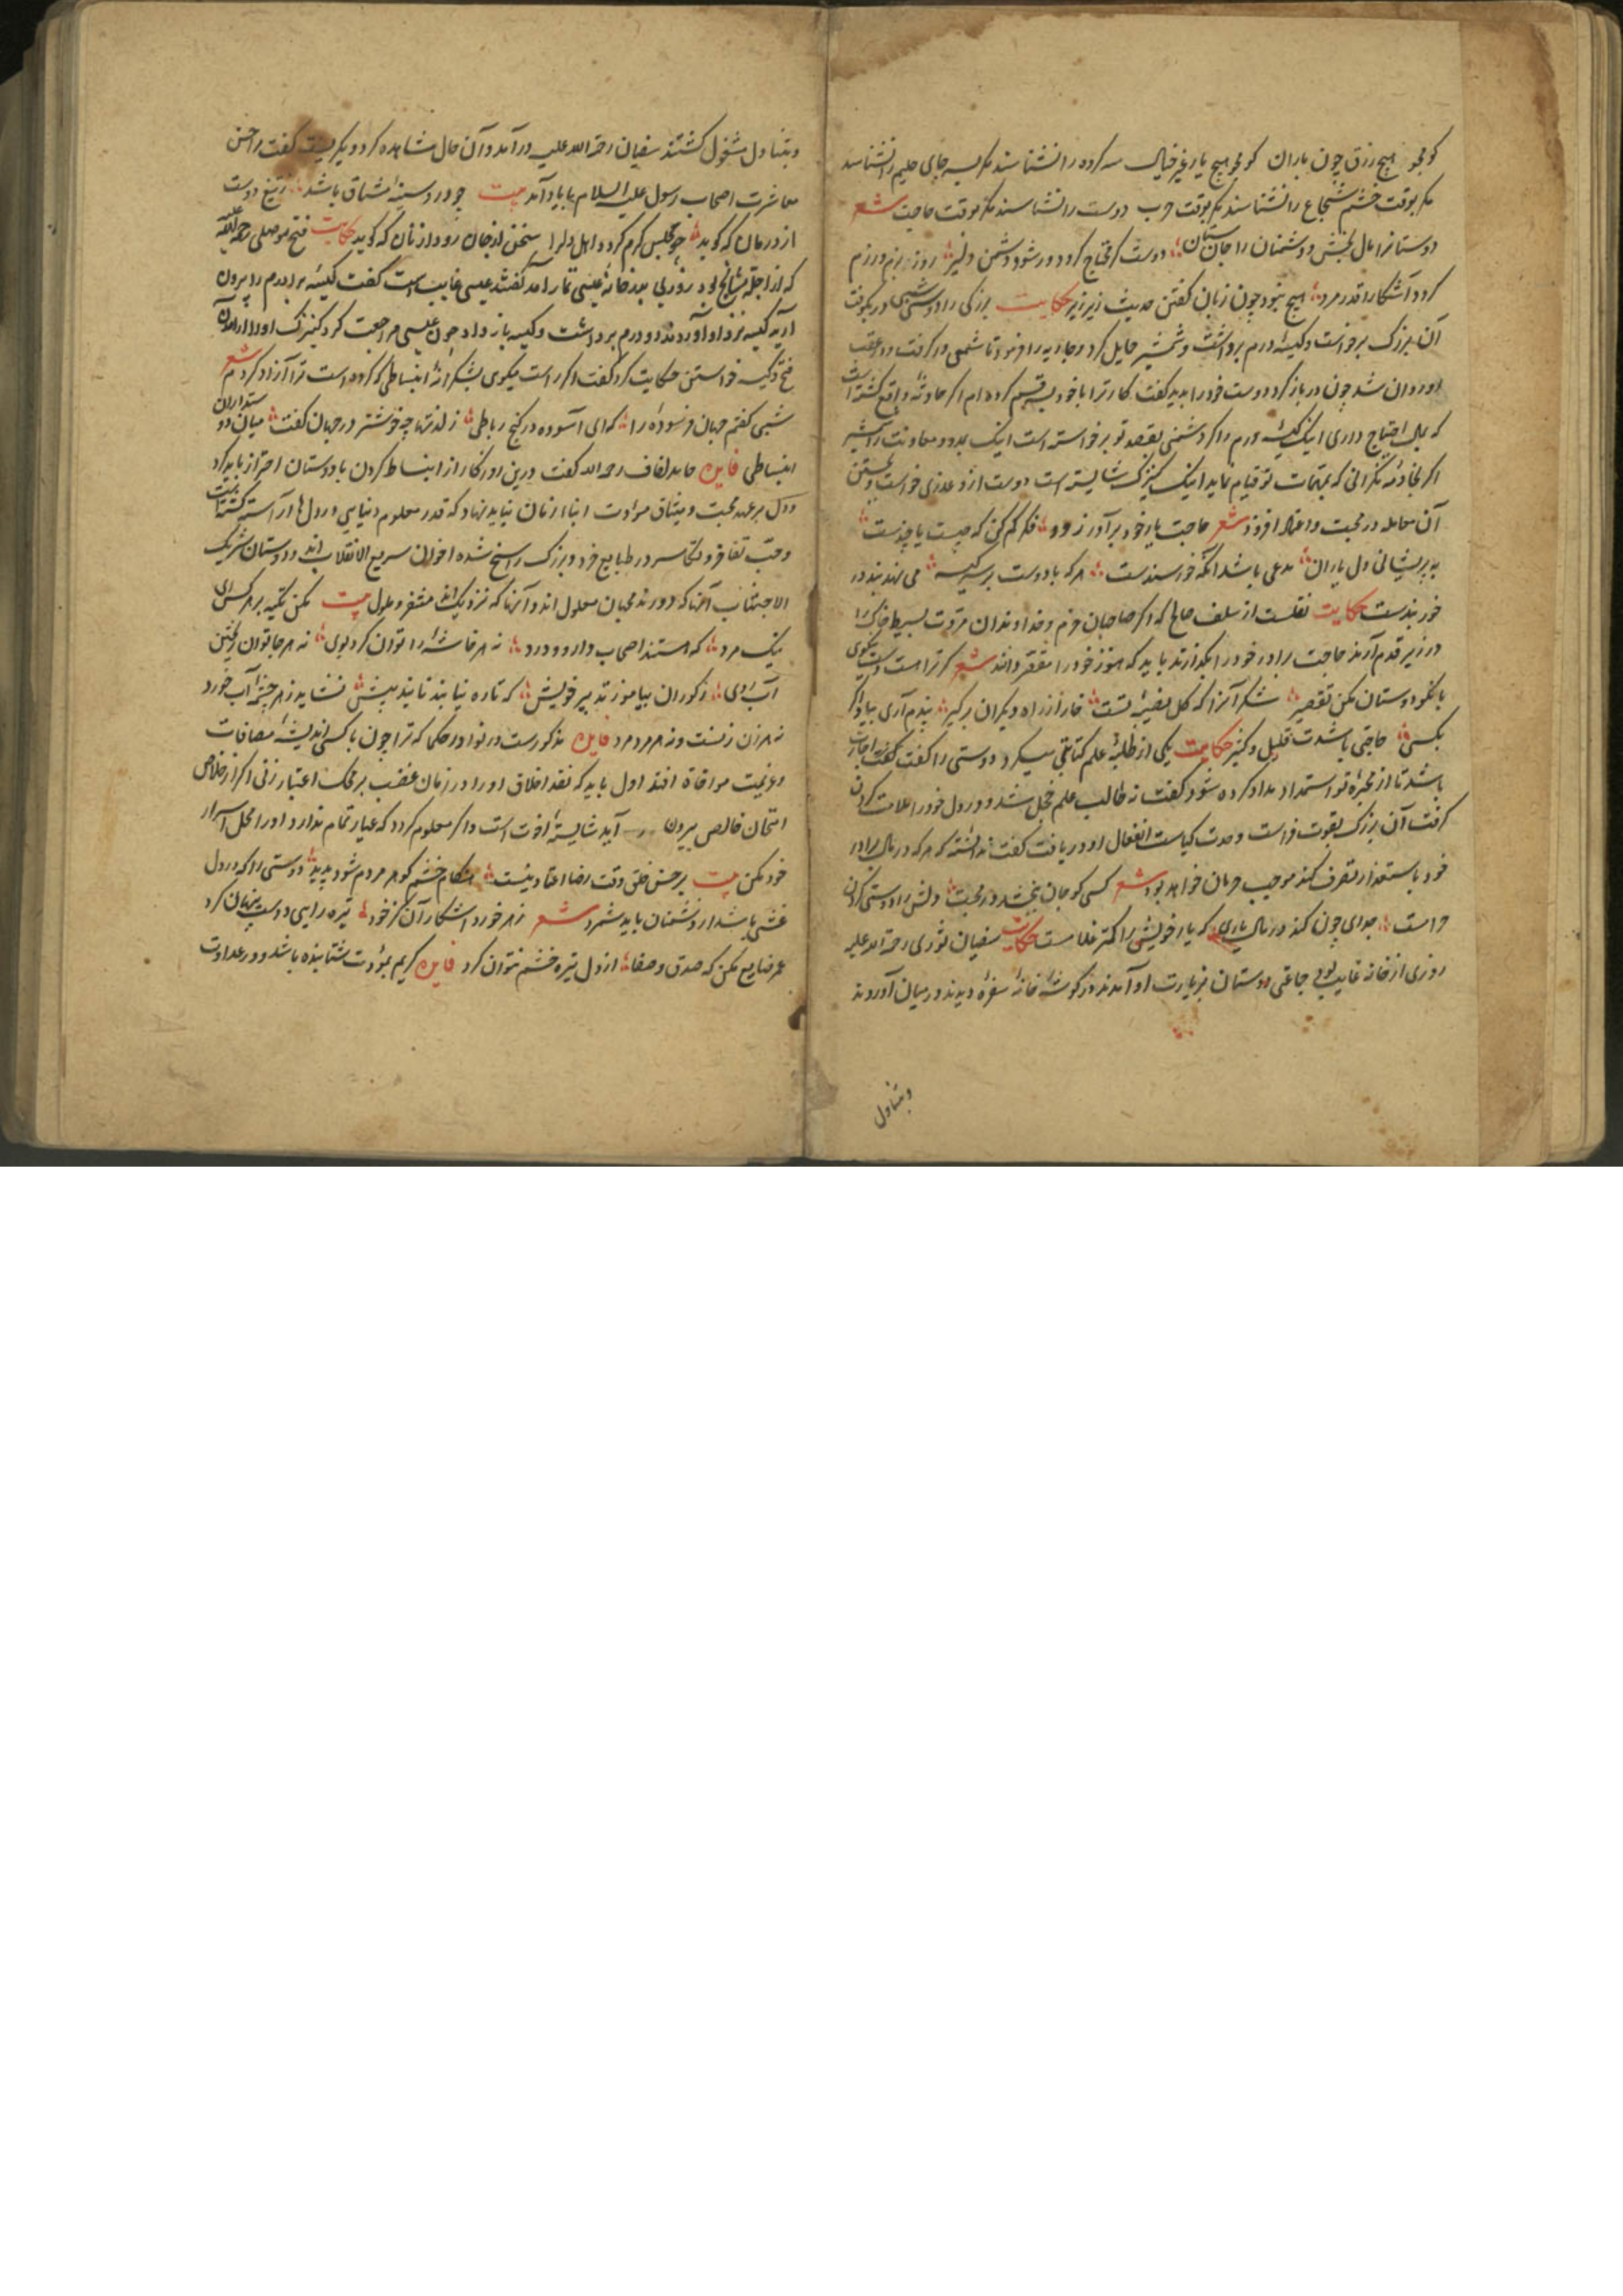 کو بجو هیچ رزق چون باران کو بجو هیچ یار غیر خیال سه کرده را نشناسند مگر بسه جای حلیم را نشناسد
مگر بوقت خشم شجاع را نشناسند مگر بوقت حرب دوست را نشناسند مگر بوقت حاجت شعر
دوستانرا مال بخش و دشمنان را جان ستان دوست گر محتاج گردد ور شود دشمن دلیر روز بزم و رزم
گردد آشکارا قدر مرد هیچ نبود چون زبان گفتن حدیث زیر زیر حکایت بزرگی را دوستی شبی در بکوفت
آن بزرگ برخواست و کیسه درم برداشت و شمشیر حمایل کرد و جاریه را فرمود تا شمعی در گرفت و در عقب
او روان شد چون در باز کرد و دوست خود را بدید گفت کار ترا با خود بسه قسم کرده ام اگر حادثه واقع گشته است
که بمال احتیاج داری اینک کیسه درم و اگر دشمنی بقصد تو برخواسته است اینک مدد و معاونت را شمشیر
اگر بخادمه نگرانی که بمهمات تو قیام نماید اینک کنیزک شایسته است دوست ازو عذری خواست و بحسن
آن معامله در محبت و اعتقاد افزود شعر حاجت یار خود برآور زود فکر کم کن که چیست یا چندست
به پریشانی دل یاران مدعی باشد آنکه خورسندست هر که با دوست بر سر کیسه می نهد بند در
خور بندست حکایت نقلست از سلف صالح که اگر صاحبان حزم و خداوندان مروت بسیط خاک را
در زیر قدم آرند حاجت برادر خود را بگذارند باید که هنوز خود را مقصر دانند شعر گر ترا هست دست نیکوی
با نکو دوستان مکن تقصیر شکر آنرا که کل نصیبه تست خار از راه دیگران برگیر بندم آری بیاد اگر
بکسی حاجتی باشدت قلیل و کثیر حکایت یکی از طلبه علم کتابتی میکرد دوستی را گفت اجازت
باشد تا از محبره تو استمداد مداد کرده شود گفت نه طالب علم خجل شد و در دل خود را ملامت کردن
گرفت آن بزرگ بقوت فراست و حدت کیاست انفعال او دریافت گفت ندانسته که هر که در مال برادر
خود باستیذان تصرف کند موجب حرمان خواهد بود شعر کسی کو جان ببخشد در محبت دلش را دوستی کردن
حرامست جدای چون کند در مال یاری که یار خویش را کمتر غلامست حکایت سفیان ثوری رحمة الله علیه
روزی از خانه غایب بود جماعتی دوستان بزیارت او آمدند در گوشه خانه سفره دیدند در میان آوردند
وبتناول
وبتناول مشغول گشتند سفیان رحمة الله علیه درآمد و آن حال مشاهده کرد و بگریست گفت احسن
معاشرت اصحاب رسول علیه السلام با یاد آمد بیت چو در دسینه مشتاق باشد ز تیغ دوست
از درمان که گوید چو مجلس گرم گردد اهل دلرا سخن از جان رود از نان که گوید حکایت فتح موصلی رحمة الله علیه
که از اجله مشایخ بود روزی بدر خانه عیسی تمار آمد گفتند عیسی غایب است گفت کیسه برادرم را بیرون
آرید کیسه نزد او آوردند دو درم برداشت و کیسه باز داد چون عیسی مراجعت کرد کنیزک او را از آمدن
فتح و کیسه خواستن حکایت کرد گفت اگر راست میگوی بشکرانه انبساطی که کرده است ترا آزاد کردم شعر
شبی گفتم جهان فرسوده را که ای آسوده در کنج رباطی ز لذتها چه خوشتر در جهان گفت میان دوستداران
انبساطی فایده حامد لفاف رحمه الله گفت درین روزگار از انبساط کردن با دوستان احتراز باید کرد
و دل بر عهد محبت و میثاق مودت ابناء زمان نباید نهاد که قدر معلوم دنیاوی در دل ها آراسته گشته است
و حب تفاخر و تکاثر در طبایع خرد و بزرگ راسخ شده اخوان سریع الانقلاب اند و دوستان شریک
الاجتناب آنها که دورند محبان معلول اند و آنها که نزدیک اند متنفر و ملول بیت مکن تکیه بر هر کس ای
نیک مرد که هستند اصحاب دارو و درد نه هر خاشه را توان کرد بوی نه هر جا توان ریختن
آب روی ز کوران بیاموز تدبیر خویش که تاره نیابند نایند پیش نشاید ز هر چشمه آب خورد
نه هر زن زنست و نه هر مرد مرد فایده مذکورست در نوادر حکما که ترا چون با کسی اندیشه مصافات
و عزیمت موافاة افتد اول باید که نقد اخلاق او را در زمان غضب بر محک اعتبار زنی اگر از خلاص
امتحان خالص بیرون آید شایسته اخوت است و اگر معلوم گردد که عیار تمام ندارد او را محل اسرار
خود مکن بیت بر حسن خلق وقت رضا اعتماد نیست هنگام خشم گوهر مردم شود پدید دوستی را که در دل
غشی باشد از دشمنان باید شمرد شعر زهر خورد اشکار آن کز خود تیره رایی دوست پنهان کرد
عمر ضایع مکن که صدق و صفا از دل تیره خشم نتوان کرد فایده کریم بمودت شتابنده باشد و در عداوت